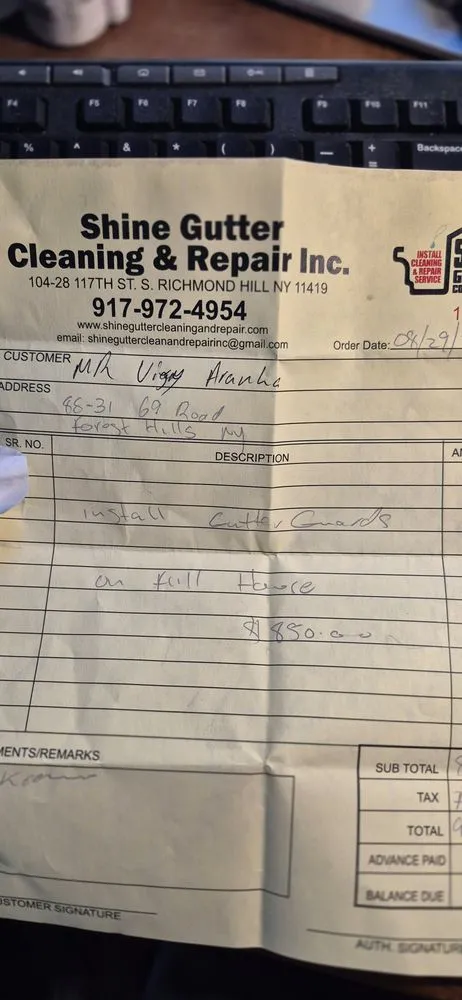 F4 F5 F6 F7 F8 F9 F10 F11
% ^ & * ( ) — + = Backspace
Shine Gutter
Cleaning & Repair Inc.
104-28 117TH ST. S. RICHMOND HILL NY 11419
917-972-4954
www.shineguttercleaningandrepair.com
email: shineguttercleanandrepairinc@gmail.com
INSTALL
CLEANING
& REPAIR
SERVICE
Order Date: 08/29/
CUSTOMER MR Aranha
ADDRESS 86-31 69 Road
Forest Hills NY
SR. NO. DESCRIPTION
install Gutter Guards
on full House
$850.00
MENTS/REMARKS
SUB TOTAL 8
TAX 7
TOTAL 9
ADVANCE PAID
BALANCE DUE
STOMER SIGNATURE
AUTH. SIGNATURE